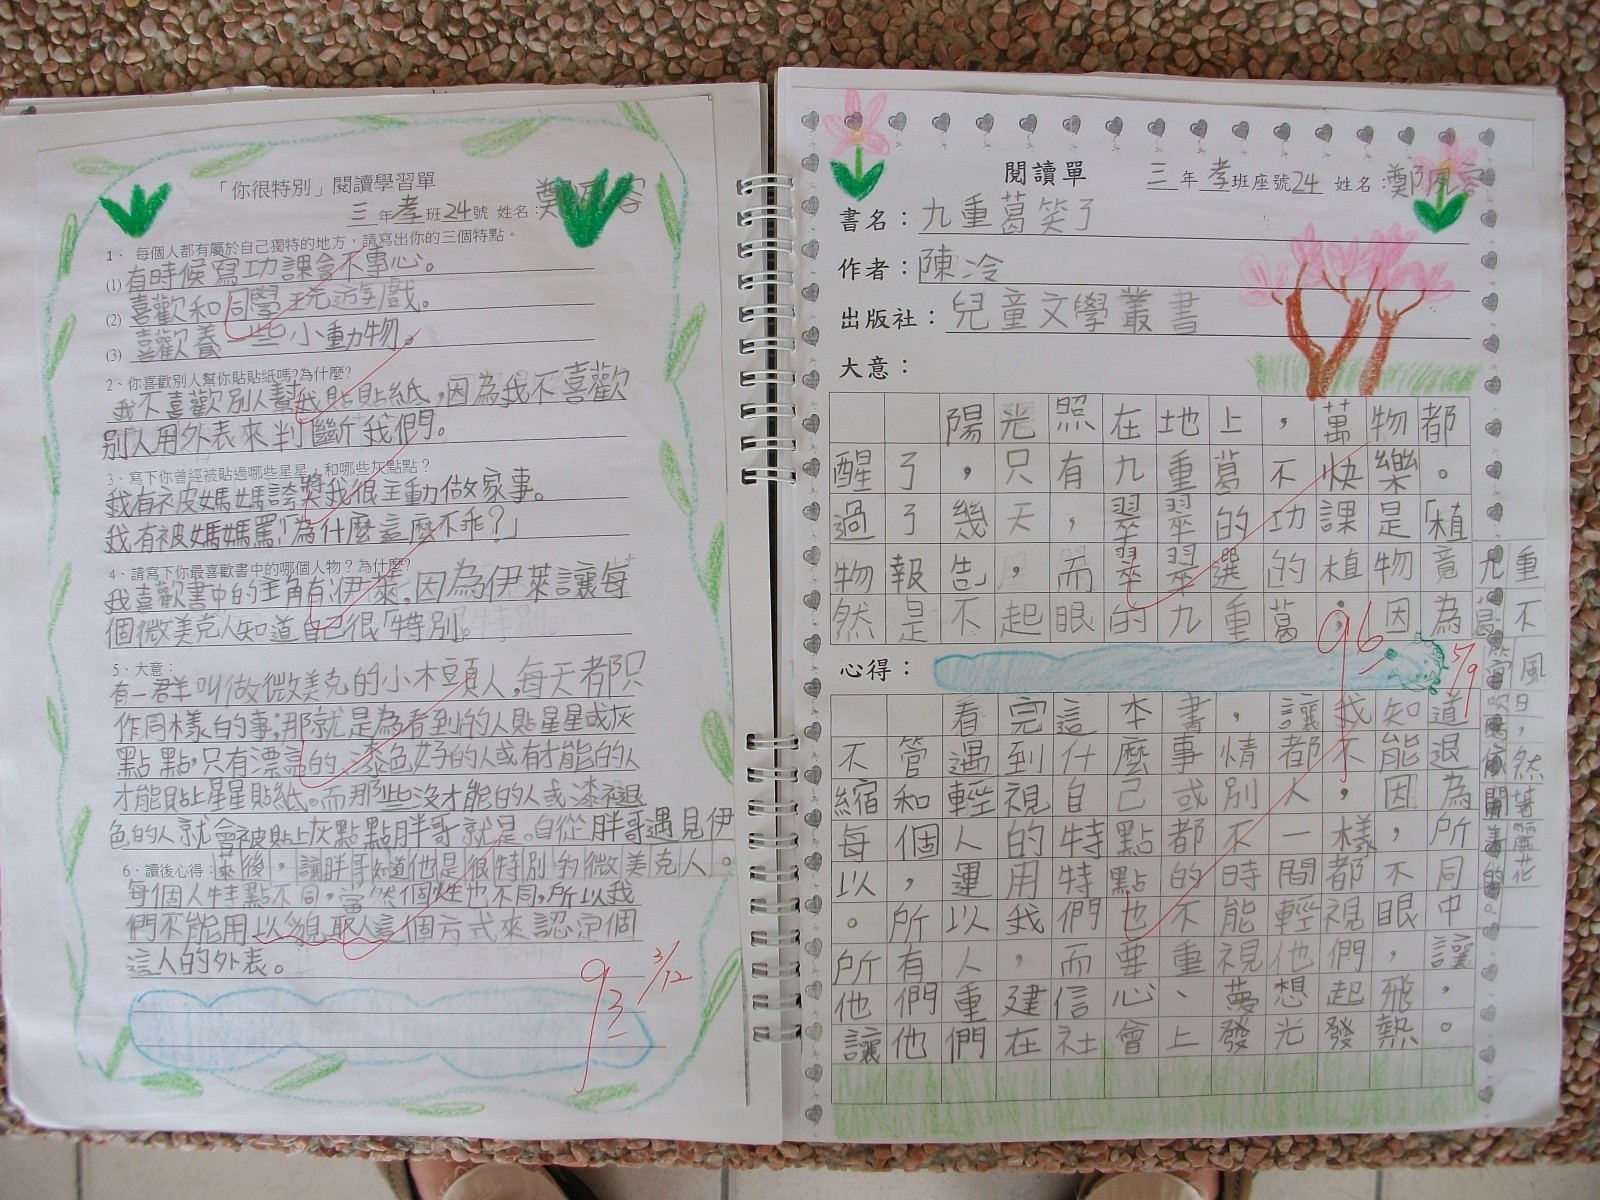 「你很特別」閱讀學習單
三年孝班24號 姓名：鄭
1、 每個人都有屬於自己獨特的地方，請寫出你的三個特點。
(1) 有時候寫功課會不專心。
(2) 喜歡和同學玩遊戲。
(3) 喜歡養一些小動物。
2、你喜歡別人幫你貼貼紙嗎?為什麼?
我不喜歡別人幫我貼貼紙，因為我不喜歡
別人用外表來判斷我們。
3、寫下你曾經被貼過哪些星星，和哪些灰點點？
我有被媽媽誇獎我很主動做家事。
我有被媽媽罵「為什麼這麼不乖？」
4、請寫下你最喜歡書中的哪個人物？為什麼?
我喜歡書中的主角有伊萊，因為伊萊讓每
個微美克人知道自己很「特別」。
5、大意：
有一群叫做微美克的小木頭人，每天都只
作同樣的事；那就是為看到的人貼星星或灰
點點，只有漂亮的、漆色好的人或有才能的人
才能貼上星星貼紙。而那些沒才能的人或漆褪
色的人就會被貼上灰點點胖哥就是。自從胖哥遇見伊
萊後，讓胖哥知道他是很特別的微美克人。
6、讀後心得：
每個人特點不同，當然個性也不同，所以我
們不能用以貌取人這個方式來認定個
這人的外表。
93
3/12
閱讀單
三年孝班座號24 姓名：鄭
書名：九重葛笑了
作者：陳冷
出版社：兒童文學叢書
大意：
陽光照在地上，萬物都
醒了，只有九重葛不快樂。
過了幾天，翠翠的功課是「植
物報告，而翠翠選的植物竟
然是不起眼的九重葛，因為
九重葛不
風
吹日
，依然
開著
麗
的花。
96
5/9
心得：
看完這本書，讓我知道
不管遇到什麼事情都不能退
縮和輕視自己或別人，因為
每個人的特點都不一樣，所
以，運用特點的時間都不同
。所以我們也不能輕視眼中
所有人，而要重視他們，讓
他們重建信心、夢想起飛，
讓他們在社會上發光發熱。